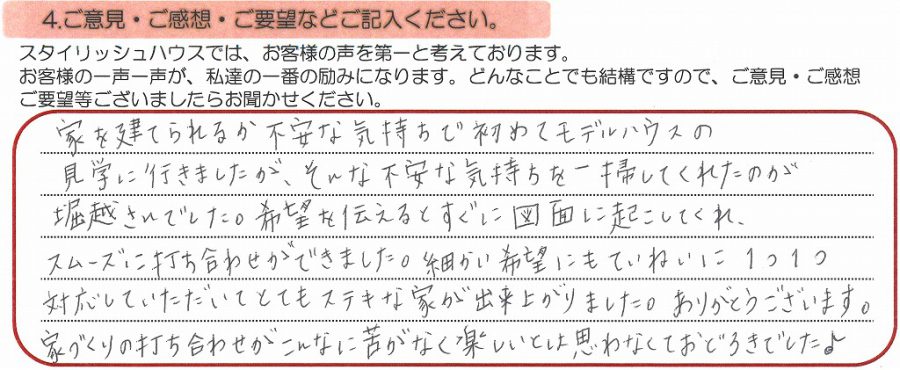 4.ご意見・ご感想・ご要望などご記入ください。
スタイリッシュハウスでは、お客様の声を第一と考えております。
お客様の一声一声が、私達の一番の励みになります。どんなことでも結構ですので、ご意見・ご感想
ご要望等ございましたらお聞かせください。
家を建てられるか不安な気持ちで初めてモデルハウスの
見学に行きましたが、そんな不安な気持ちを一掃してくれたのが
堀越さんでした。希望を伝えるとすぐに図面に起こしてくれ、
スムーズに打ち合わせができました。細かい希望にもていねいに1つ1つ
対応していただいてとてもステキな家が出来上がりました。ありがとうございます。
家づくりの打ち合わせがこんなに苦がなく楽しいとは思わなくておどろきでした♪